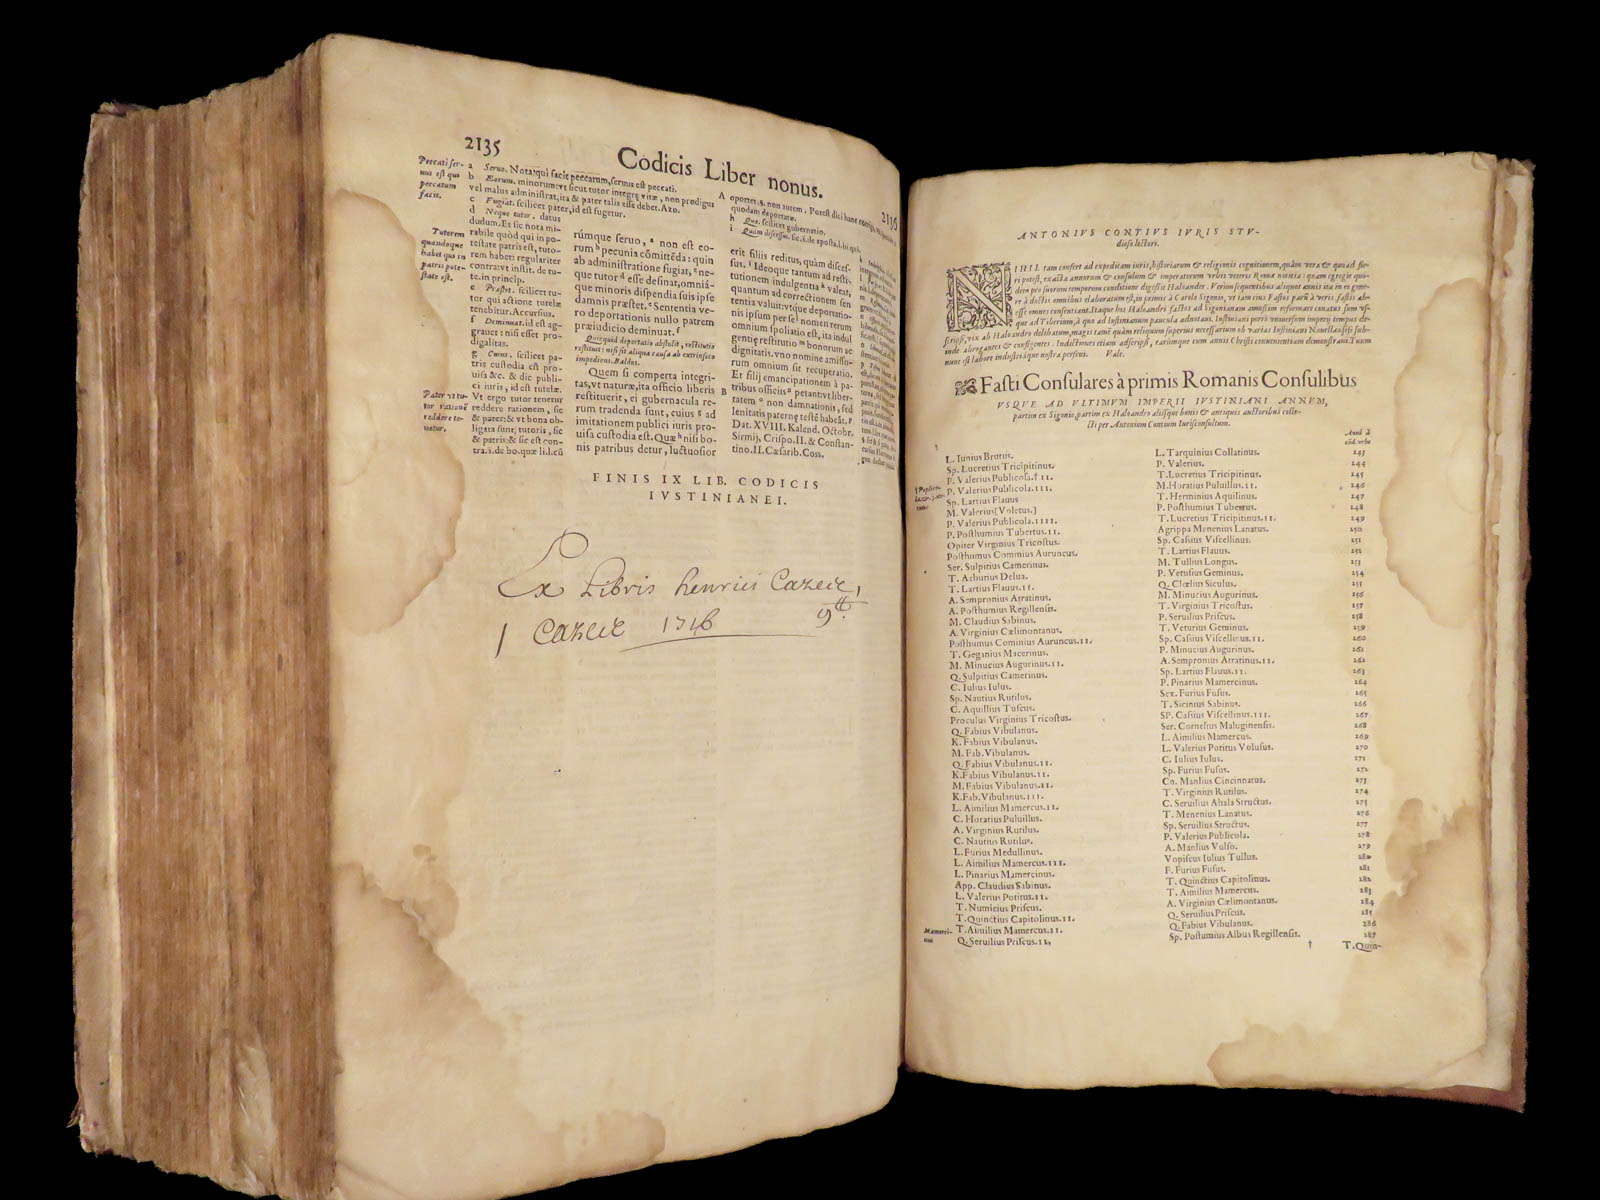 2135
Codicis Liber nonus.
2136
Peccati ser-
uus est qui
peccatum
facit.
Tutorem
quandoque
habet qui in
patris pote-
state est.
Pater vt tu-
tor rationē
reddere te-
netur.
a Seruo. Nota: qui facit peccatum, seruus est peccati.
b Earum. minorum: vt sicut tutor integrę vitæ, non prodigus
vel malus administrat, ita & pater talis esse debet. Azo.
c Fugiat. scilicet pater, id est fugetur.
d Neque tutor. datus
dudum. Et sic nota mi-
rabile quòd qui in po-
testate patris est, tuto-
rem habet: regulariter
contra: vt instit. de tu-
te. in princip.
e Præstet. scilicet tu-
tor qui actione tutelæ
tenebitur. Accursius.
f Deminuat. id est ag-
grauet: nisi esset pro-
digalitas.
g Cuius. scilicet pa-
tris custodia est pro-
uisa &c. & dic publi-
ci iuris, id est tutelæ.
Vt ergo tutor tenetur
reddere rationem, sic
& pater: & vt bona ob-
ligata sunt tutoris, sic
& patris: & sic est con-
tra. i. de bo. quæ li. l. cū
rúmque seruo, a non est eo-
rum b pecunia cōmittēda: quin
ab administratione fugiat, c ne-
que tutor d esse desinat, omniá-
que minoris dispendia suis ipse
damnis præstet. e Sententia ve-
ro deportationis nullo patrem
præiudicio deminuat. f
Quicquid deportatio abstulit, restitutio
restituit: nisi sit aliqua causa ab extrinseco
impediens. Baldus.
Quem si comperta integri-
tas, vt naturæ, ita officio liberis
restituerit, ei gubernacula re-
rum tradenda sunt, cuius g ad
imitationem publici iuris pro-
uisa custodia est. Quæ h nisi bo-
nis patribus detur, luctuosior
A oportet. s. non autem. Potest dici hanc
quodam deportate.
h Quæ. scilicet gubernatio.
i Quàm discessus. sic. s. de aposta. l. hi qui.
erit filiis reditus, quàm disces-
sus. i Ideoque tantum ad resti-
tutionem indulgentia k valeat,
quantum ad correctionem sen
tentia valuit: vtque deportatio-
nis ipsum per se l nomen rerum
omnium spoliatio est, ita indul
gentię restitutio m bonorum ac
dignitatis. vno nomine amisso-
rum omnium sit recuperatio.
Et filij emancipationem à pa-
B tribus officiis n petant: vt liber-
tatem o non damnationis, sed
lenitatis paternę testē habeāt. p
Dat. XVIII. Kalend. Octobr.
Sirmij, Crispo. II. & Constan-
tino. II. Cæsarib. Coss.
FINIS IX LIB. CODICIS
IVSTINIANEI.
Ex Libris henrici Cazeie,
1 Cazeie 1716 9tt.
ANTONIVS CONTIVS IVRIS STV-
dioso lectori.
NIHIL tam confert ad expeditam iuris, historiarum & religionis cognitionem, quàm vera & quoad fie-
ri potest, exacta annorum & consulum & imperatorum vrbis veteris Romæ notitia: quam egregiè qui-
dem pro suorum temporum conditione digessit Haloander. Verùm sequentibus aliquot annis ita in eo gene-
re à doctis omnibus elaboratum est, in primis à Carolo Sigonio, vt iam eius Fastos parū à veris fastis ab-
esse omnes consentiant. Itaque hos Haloandri fastos ad Sigonianam amussim reformare conatus sum vs-
que ad Tiberium, à quo ad Iustinianum paucula adnotaui. Iustiniani porrò vniuersum imperij tempus de-
scripsi, vix ab Haloandro delibatum, magis tamē quàm reliquum superius necessarium ob varias Iustiniani Nouellas sese sub-
inde abrogantes & corrigentes. Indictiones etiam adscripsi, earúmque cum annis Christi conuenientiam demonstraui. Tuum
nunc est labore industriáque nostra perfrui. Vale.
Fasti Consulares à primis Romanis Consulibus
VSQVE AD VLTIMVM IMPERII IVSTINIANI ANNVM,
partim ex Sigonio, partim ex Haloandro aliisque bonis & antiquis auctoribus colle-
cti per Antonium Contium Iurisconsultum.
Anni à
cōd. vrbe
L. Iunius Brutus. L. Tarquinius Collatinus. 245
Sp. Lucretius Tricipitinus. P. Valerius. 244
P. Valerius Publicola.† II. T. Lucretius Tricipitinus. 245
P. Valerius Publicola. III. M. Horatius Puluillus. II. 246
Sp. Lartius Flauus T. Herminius Aquilinus. 247
M. Valerius [Voletus.] P. Posthumus Tubertus. 248
P. Valerius Publicola. IIII. T. Lucretius Tricipitinus. II. 249
P. Posthumius Tubertus. II. Agrippa Menenius Lanatus. 250
Opiter Virginius Tricostus. Sp. Cassius Viscellinus. 251
Posthumus Commius Auruncus. T. Lartius Flauus. 252
Ser. Sulpitius Camerinus. M. Tullius Longus. 253
T. Aebutius Delua. P. Vetusius Geminus. 254
T. Lartius Flauus. II. Q. Clœlius Siculus. 255
A. Sempronius Atratinus. M. Minucius Augurinus. 256
A. Posthumius Regillensis. T. Virginius Tricostus. 257
M. Claudius Sabinus. P. Seruilius Priscus. 258
A. Virginius Cælimontanus. T. Veturius Geminus. 259
Posthumus Cominius Auruncus. II. Sp. Cassius Viscellinus. II. 260
T. Geganius Macerinus. P. Minucius Augurinus. 261
M. Minucius Augurinus. II. A. Sempronius Atratinus. II. 262
Q. Sulpitius Camerinus. Sp. Lartius Flauus. II. 263
C. Iulius Iulus. P. Pinarius Mamercinus. 264
Sp. Nautius Rutilus. Sex. Furius Fusus. 265
C. Aquillius Tuscus. T. Sicinius Sabinus. 266
Proculus Virginius Tricostus. SP. Cassius Viscellinus. III. 267
Q. Fabius Vibulanus. Ser. Cornelius Maluginensis. 268
K. Fabius Vibulanus. L. Aimilius Mamercus. 269
M. Fab. Vibulanus. L. Valerius Potitus Volusus. 270
Q. Fabius Vibulanus. II. C. Iulius Iulus. 271
K. Fabius Vibulanus. II. Sp. Furius Fusus. 272
M. Fabius Vibulanus. II. Cn. Manlius Cincinnatus. 273
K. Fab. Vibulanus. III. T. Virginius Rutilus. 274
L. Aimilius Mamercus. II. C. Seruilius Ahala Structus. 275
C. Horatius Puluillus. T. Menenius Lanatus. 276
A. Virginius Rutilus. Sp. Seruilius Structus. 277
C. Nautius Rutilus. P. Valerius Publicola. 278
L. Furius Medullinus. A. Manlius Vulso. 279
L. Aimilius Mamercus. III. Vopiscus Iulius Tullus. 280
L. Pinarius Mamercinus. F. Furius Fusus. 281
App. Claudius Sabinus. T. Quinctius Capitolinus. 282
L. Valerius Potitus. II. T. Aimilius Mamercus. 283
T. Numicius Priscus. A. Virginius Cælimontanus. 284
T. Quinctius Capitolinus. II. Q. Seruilius Priscus. 285
T. Aimilius Mamercus. II. Q. Fabius Vibulanus. 286
Q. Seruilius Priscus. II. Sp. Postumius Albus Regillensis. 287
Mamerci-
nus
† T. Quin-